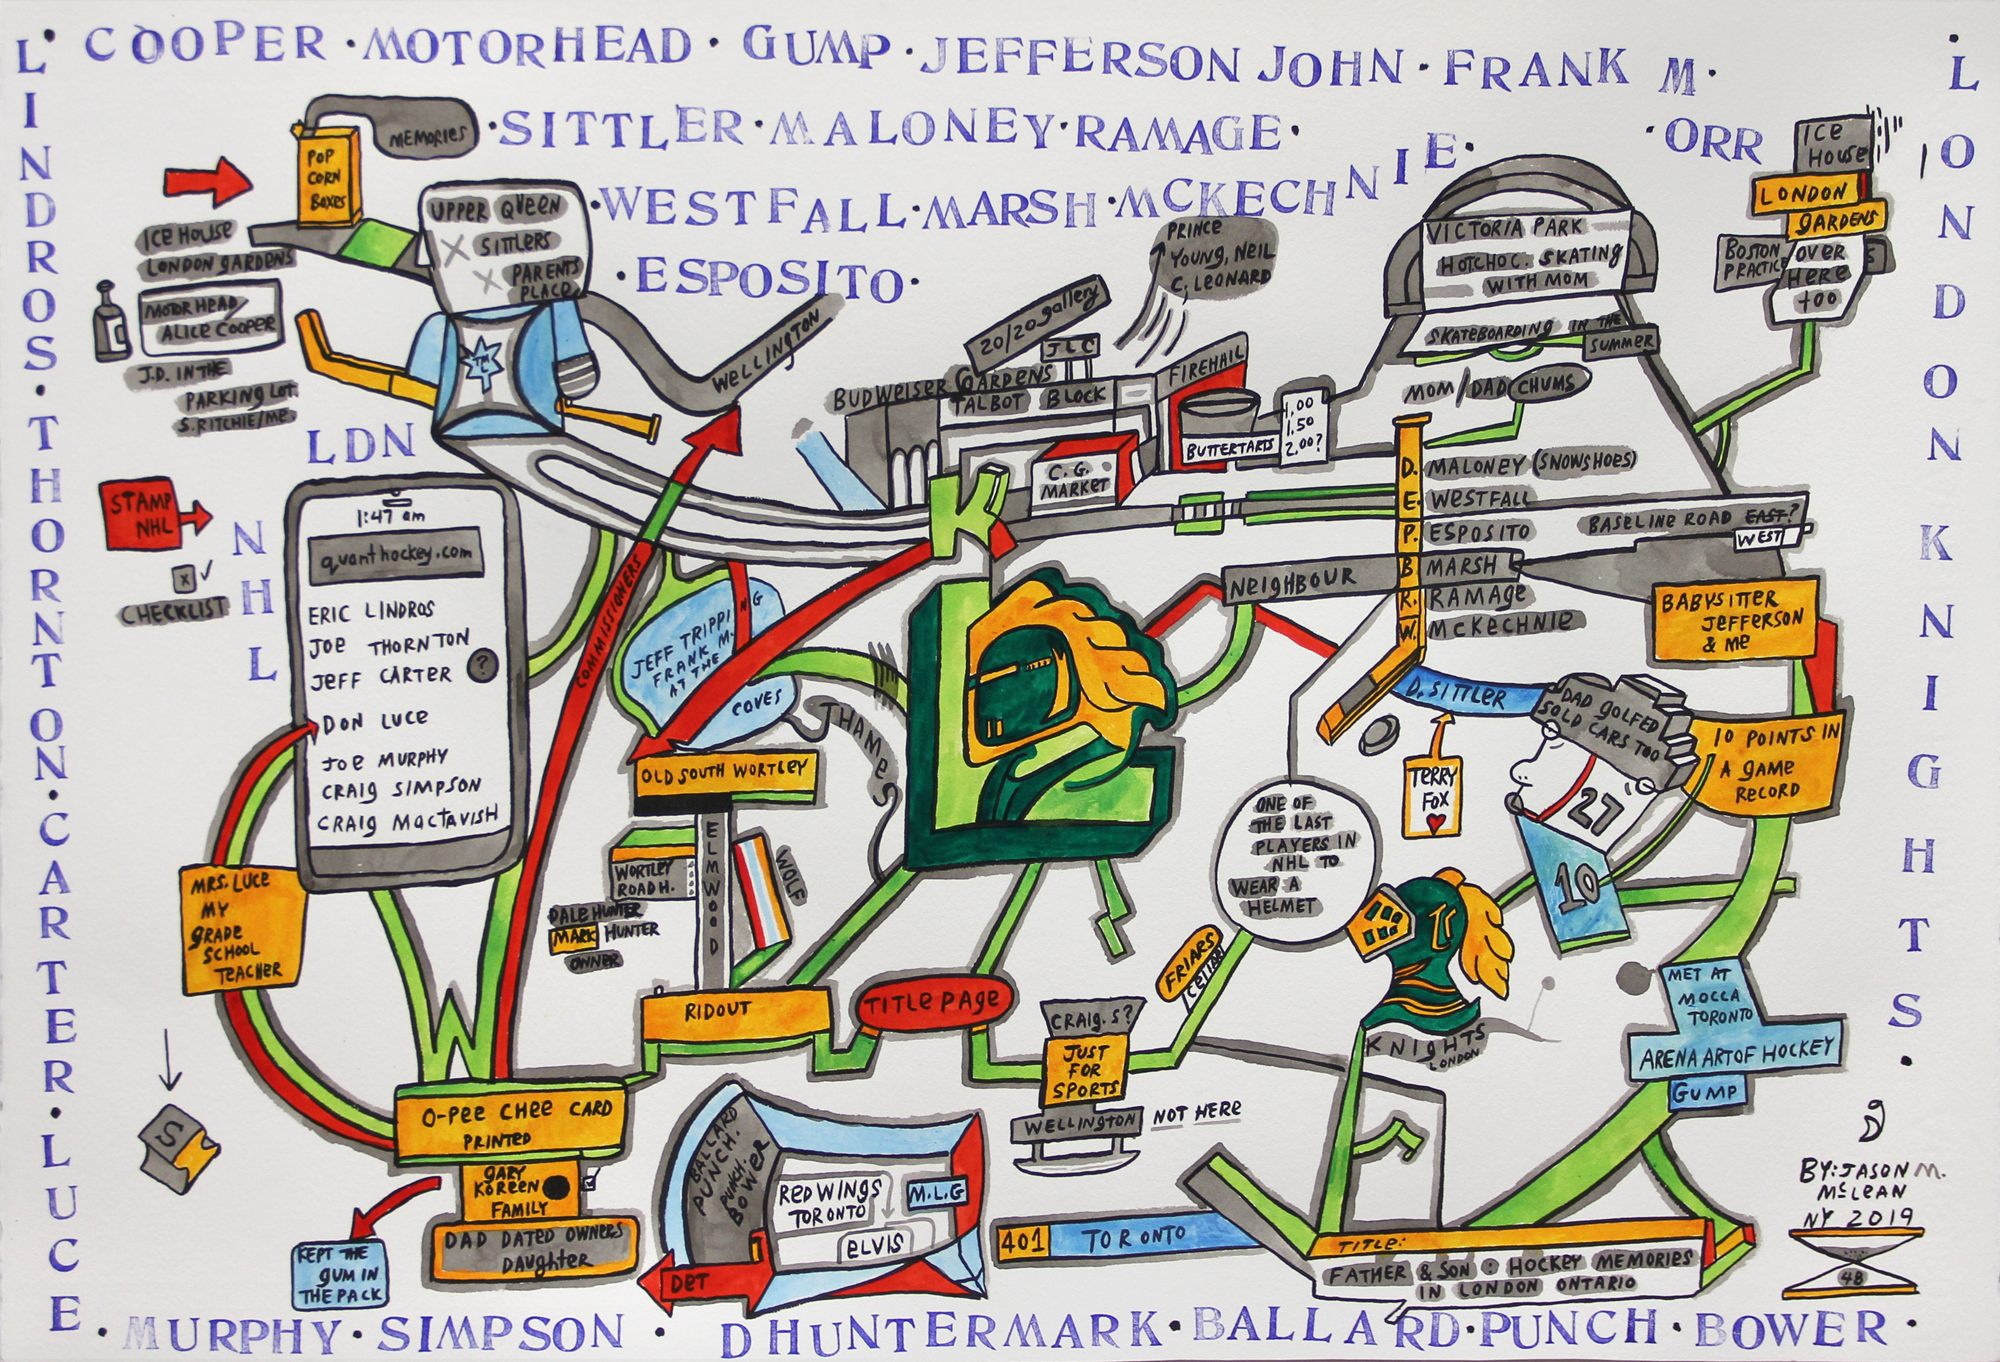 L·COOPER·MOTORHEAD·GUMP·JEFFERSON JOHN·FRANK M.
·SITTLER·MALONEY·RAMAGE·
·ORR
·WESTFALL·MARSH·MCKECHNIE·
·ESPOSITO·
LINDROS·THORNTON·CARTER·LUCE
·LONDON KNIGHTS·
·MURPHY·SIMPSON·DHUNTERMARK·BALLARD·PUNCH·BOWER·
LDN
NHL
MEMORIES
POP
CORN
BOXES
ICE HOUSE
LONDON GARDENS
MOTORHEAD/
ALICE COOPER
J.D. IN THE
PARKING LOT.
S.RITCHIE/ME.
UPPER QUEEN
X SITTLERS
X PARENTS
PLACE
TML
WELLINGTON
STAMP
NHL
X
CHECKLIST
1:47 am
quanthockey.com
ERIC LINDROS
JOE THORNTON
JEFF CARTER ?
DON LUCE
JOE MURPHY
CRAIG SIMPSON
CRAIG MACTAVISH
MRS. LUCE
MY
GRADE
SCHOOL
TEACHER
S
COMMISSIONERS
JEFF TRIPPING
FRANK M.
AT THE
COVES
THAMES
20/20 gallery
JLC
BUDWEISER GARDENS
TALBOT BLOCK
C.G.
MARKET
FIREHALL
BUTTERTARTS
1.00
1.50
2.00?
PRINCE
YOUNG, NEIL
C, LEONARD
VICTORIA PARK
HOTCHOC. SKATING
WITH MOM
SKATEBOARDING IN THE
SUMMER
MOM/DAD CHUMS
ICE
HOUSE
LONDON
GARDENS
BOSTON
PRACTICE
OVER
HERE
TOO
D. MALONEY (SNOWSHOES)
E. WESTFALL
P. ESPOSITO
B MARSH
R. RAMAGE
W. MCKECHNIE
NEIGHBOUR
BASELINE ROAD EAST?
WEST
BABYSITTER
JEFFERSON
& ME
K
L
D. SITTLER
TERRY
FOX
DAD GOLFED
SOLD CARS TOO
27
10
10 POINTS IN
A GAME
RECORD
ONE OF
THE LAST
PLAYERS IN
NHL TO
WEAR A
HELMET
KNIGHTS
LONDON
OLD SOUTH WORTLEY
ELMWOOD
WOLF
WORTLEY
ROAD H.
DALE HUNTER
MARK HUNTER
OWNER
RIDOUT
TITLE PAGE
FRIARS
CELLAR
CRAIG. S?
JUST
FOR
SPORTS
WELLINGTON
NOT HERE
MET AT
MOCCA
TORONTO
ARENA ART OF HOCKEY
GUMP
O-PEE CHEE CARD
PRINTED
GARY
KOREEN
FAMILY
DAD DATED OWNERS
DAUGHTER
KEPT THE
GUM IN
THE PACK
BALLARD
PUNCH.
PUNCH.
BOWER
RED WINGS
TORONTO
ELVIS
M.L.G
DET
401 TORONTO
TITLE:
FATHER & SON · HOCKEY MEMORIES
IN LONDON ONTARIO
BY: JASON M.
McLEAN
NY 2019
48